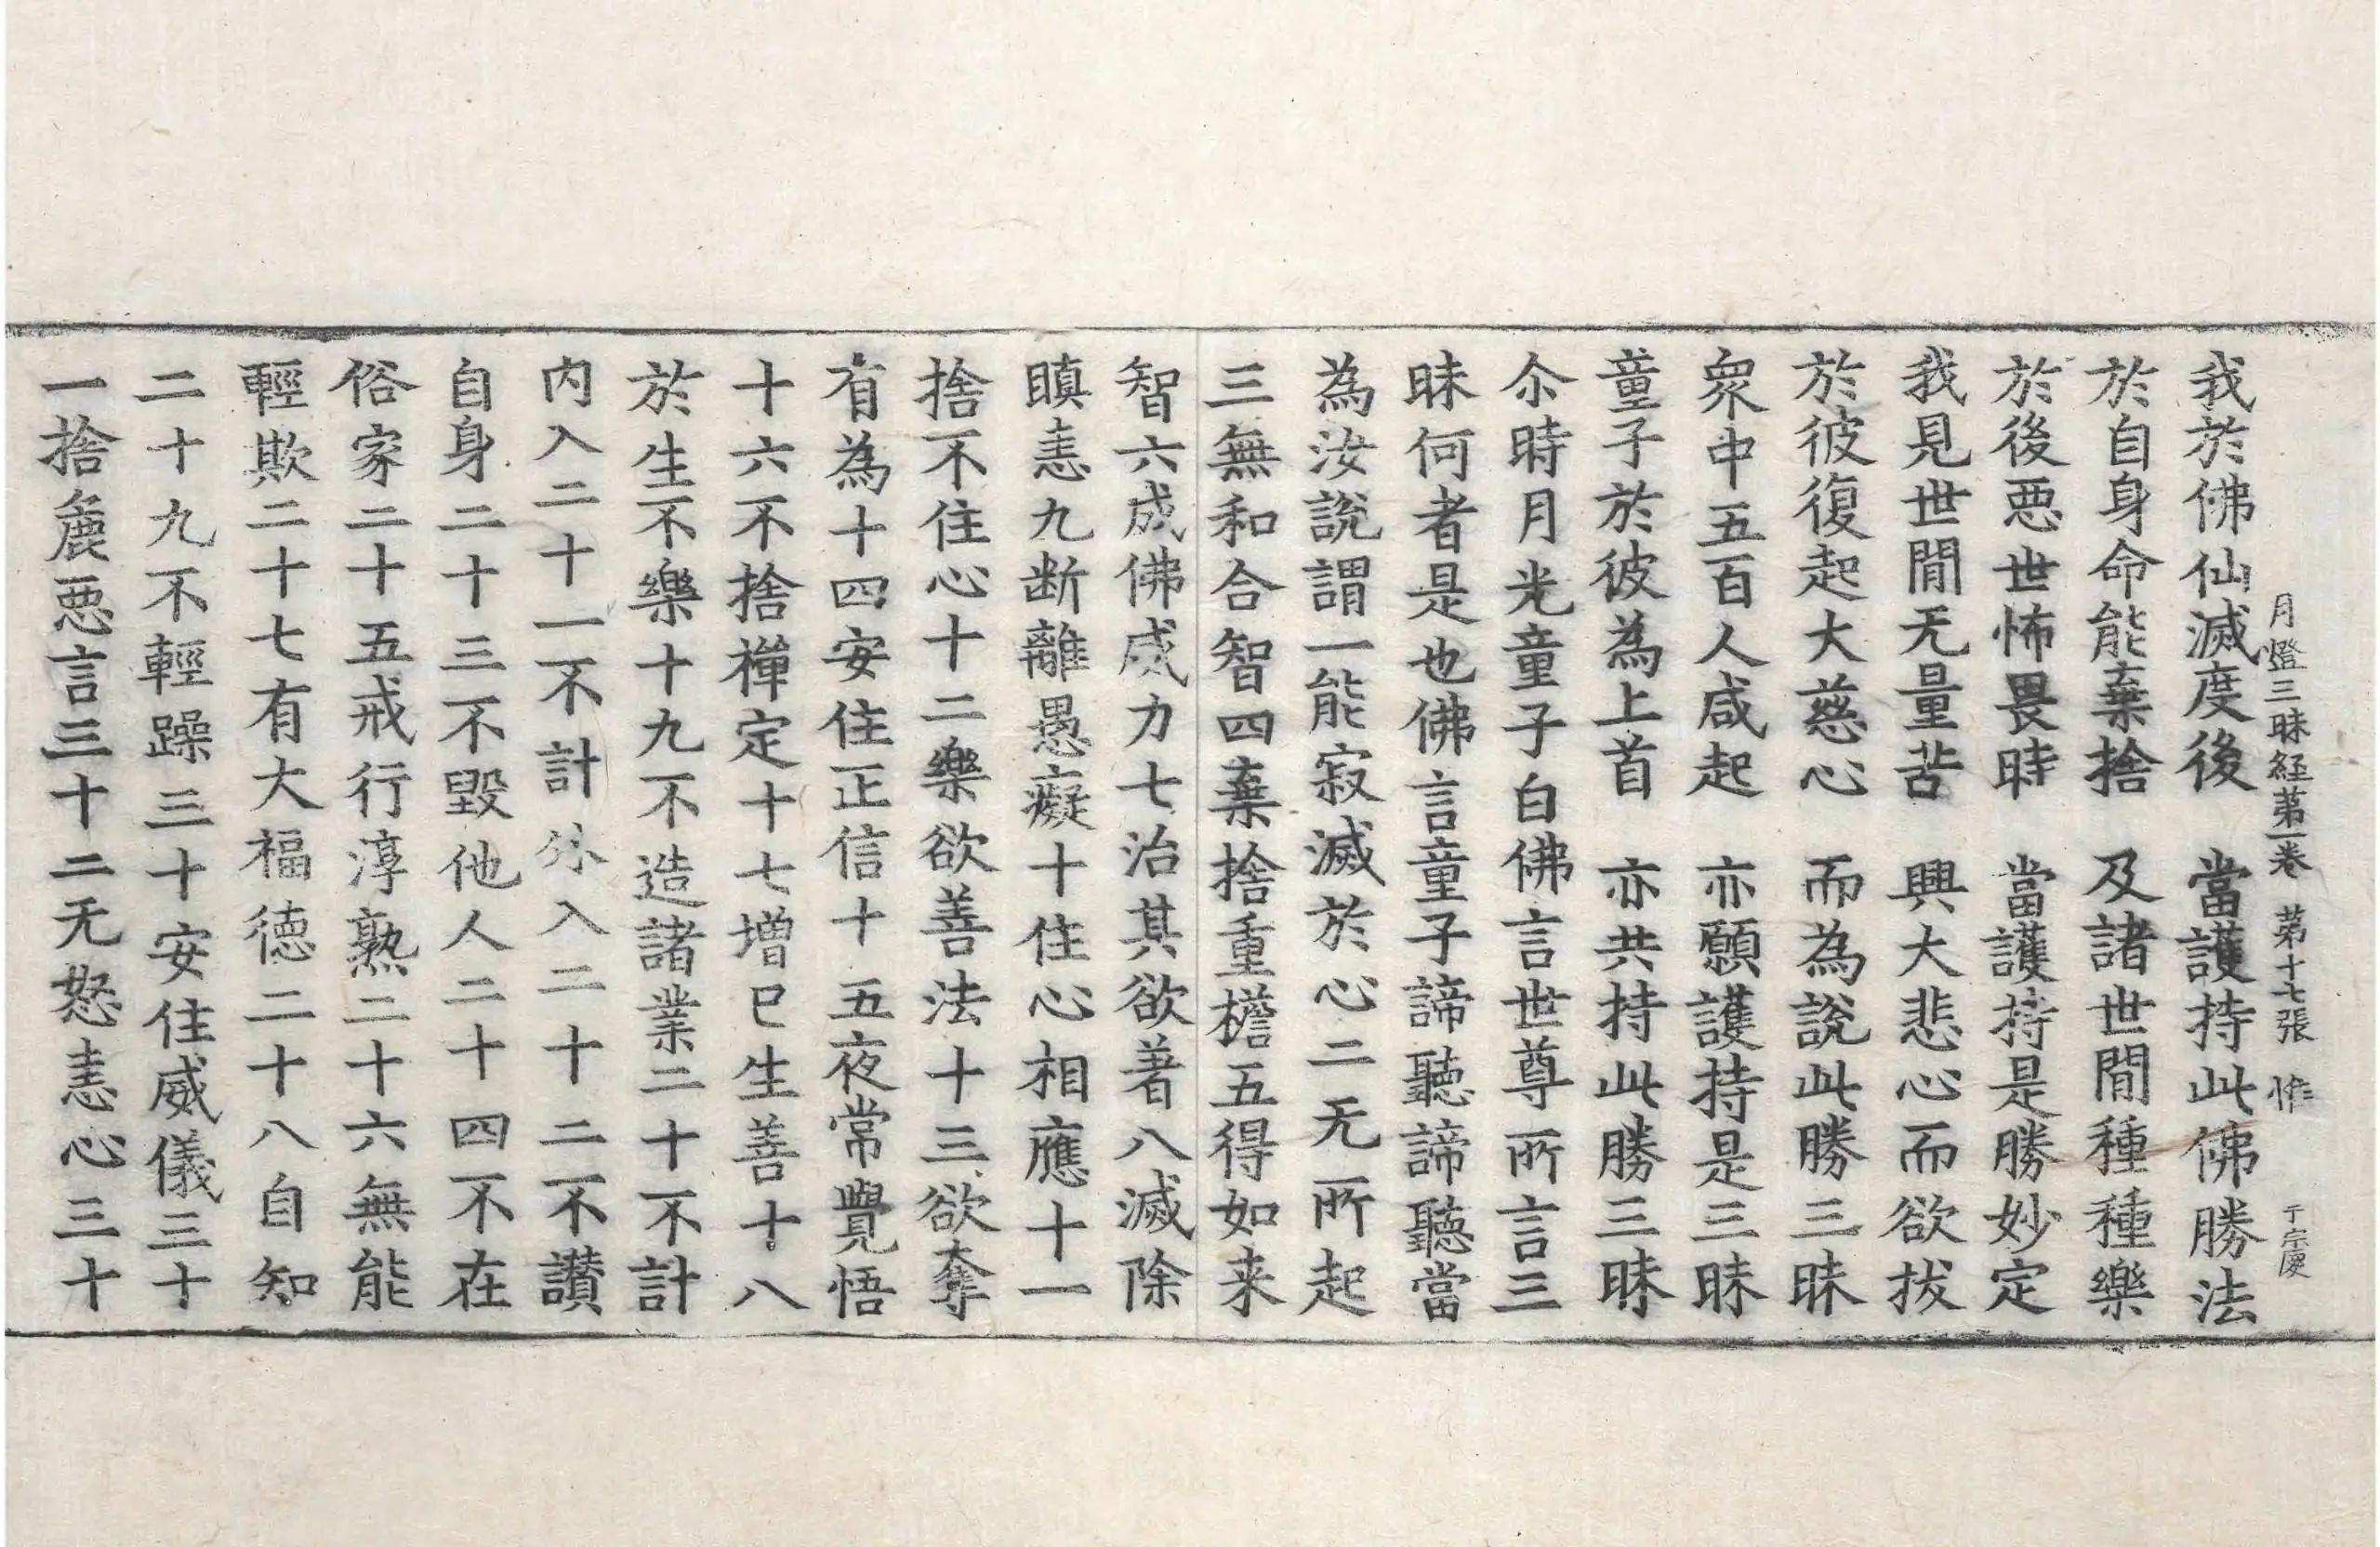 月燈三昧経第一卷 第十七張 惟 于宗慶
我於佛仙滅度後 當護持此佛勝法
於自身命能棄捨 及諸世閒種種樂
於後惡世怖畏時 當護持是勝妙定
我見世閒无量苦 興大悲心而欲拔
於彼復起大慈心 而為說此勝三昧
衆中五百人咸起 亦願護持是三昧
童子於彼為上首 亦共持此勝三昧
尒時月光童子白佛言世尊所言三
昧何者是也佛言童子諦聽諦聽當
為汝說謂一能寂滅於心二无所起
三無和合智四棄捨重檐五得如来
智六成佛威力七治其欲著八滅除
瞋恚九断離愚癡十住心相應十一
捨不住心十二樂欲善法十三欲奪
有為十四安住正信十五夜常覺悟
十六不捨禪定十七増已生善十八
於生不樂十九不造諸業二十不計
内入二十一不計外入二十二不讚
自身二十三不毀他人二十四不在
俗家二十五戒行淳熟二十六無能
輕欺二十七有大福徳二十八自知
二十九不輕躁三十安住威儀三十
一捨麁惡言三十二无怒恚心三十